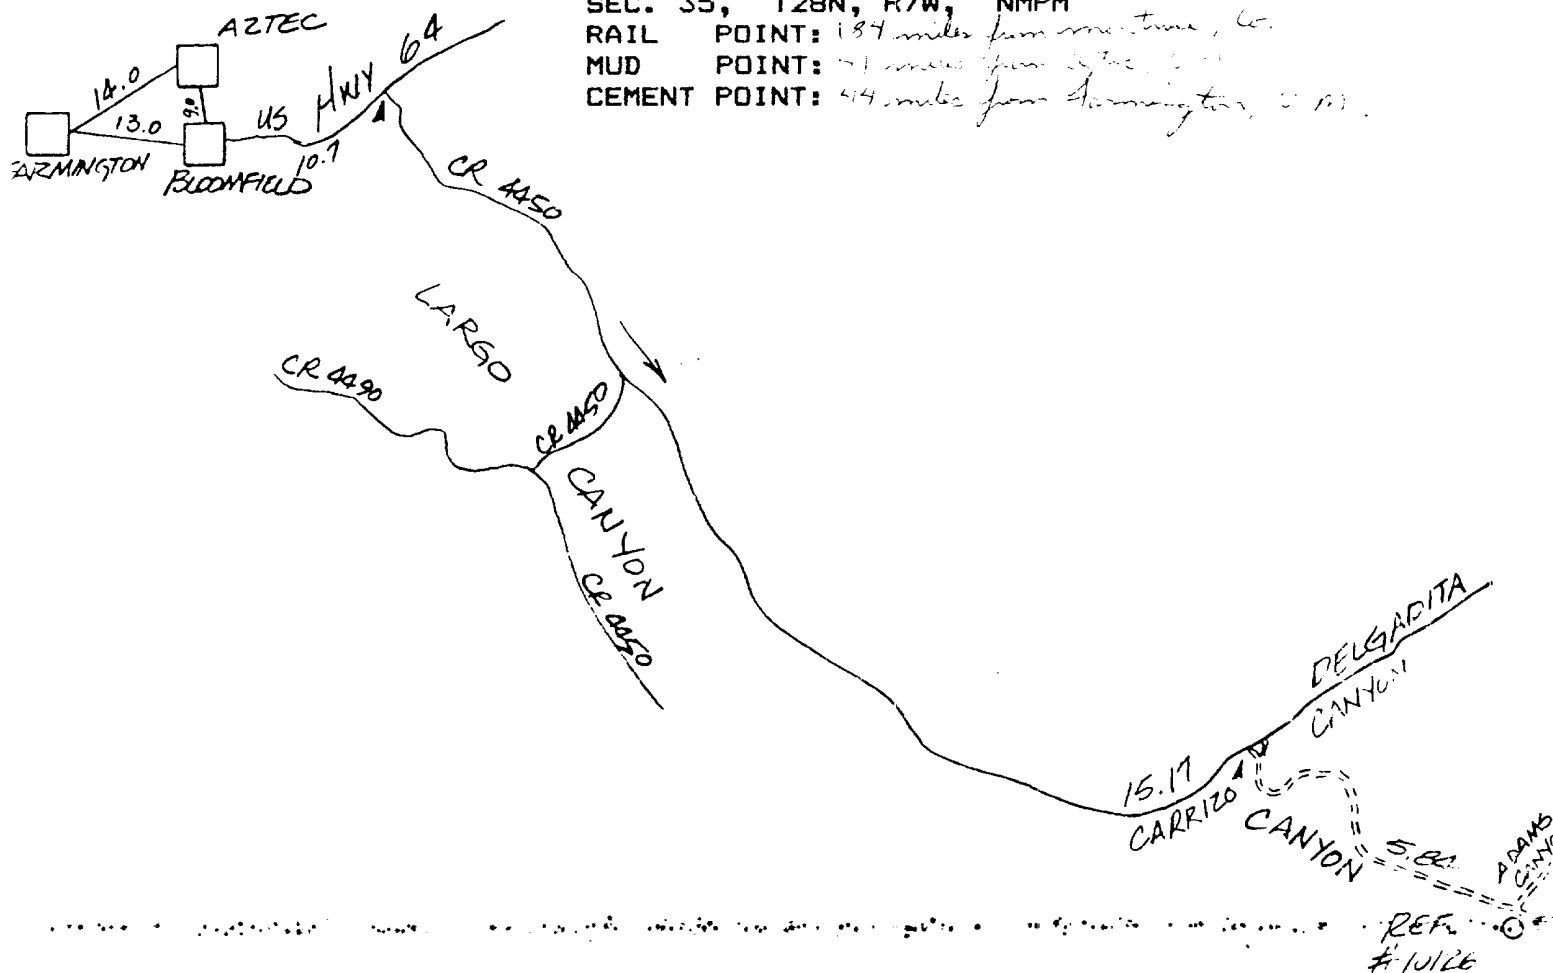 SEC. 35, T28N, R7W, NMPM
RAIL POINT: 184 miles from
MUD POINT: miles from
CEMENT POINT: 44 miles from Farmington,
AZTEC
14.0
13.0
9.0
ARMINGTON
BLOOMFIELD
US HWY 64
10.7
CR 4450
LARGO
CR 4490
CR 4450
CANYON
CR 4450
DELGADITA
CANYON
15.17
CARRIZO
CANYON
ADAMS
REF.